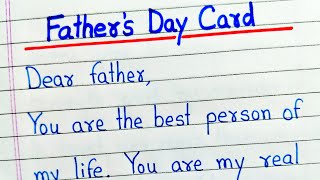 Father's Day Card
Dear father,
You are the best person of
my life. You are my real